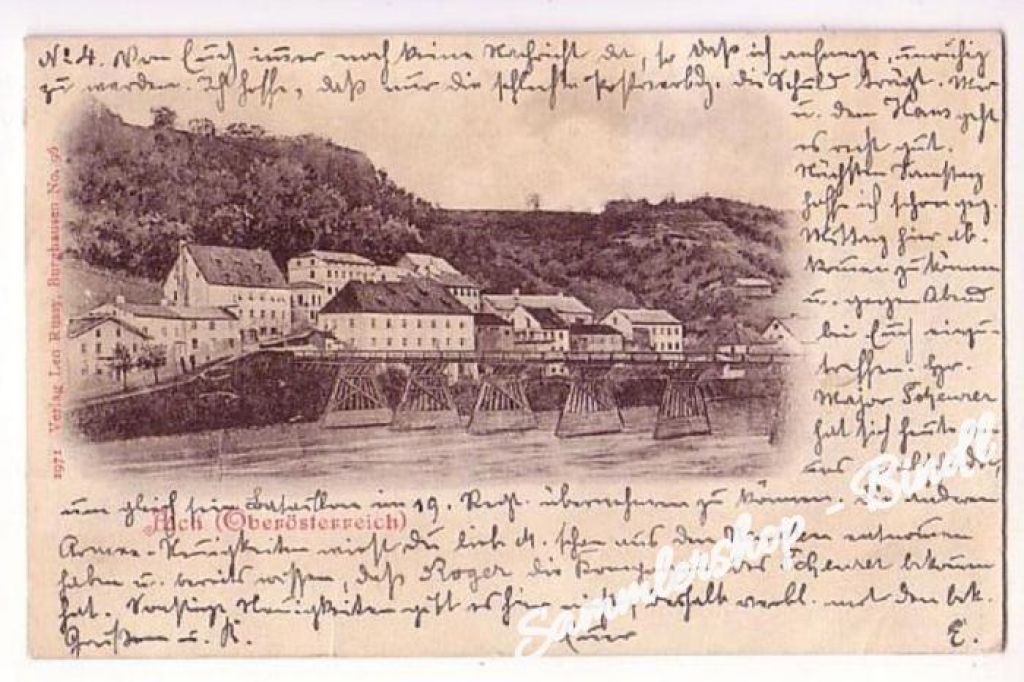 No 4. Von Euch immer noch keine Nachricht da, so daß ich anfange, unruhig
zu werden. Ich hoffe, daß nur die schlechte Postverbdg. die Schuld trägt. Mir
u. dem Hans geht
es recht gut.
Nächsten Samstag
hoffe ich schon geg.
Mittag hier ab-
kommen zu können
u. gegen Abend
bei Euch einzu-
treffen. Hr.
Major Scheurer
hat sich heute
um gleich sein Bataillon im 19. Regt. übernehmen zu können. anderen
Armee-Neuigkeiten wirst Du liebe M. schon aus den entnommen
haben u. bereits wissen, daß Roger die Komp. des Scheurer bekommen
hat. Sonstige Neuigkeiten gibt es hier nicht, deshalb verbl. mit den bek.
Grüßen u. K. Euer E.
Ach (Oberösterreich)
1971 Verlag Leo Russy, Burghausen No. 96
Sammlershop - Bindl